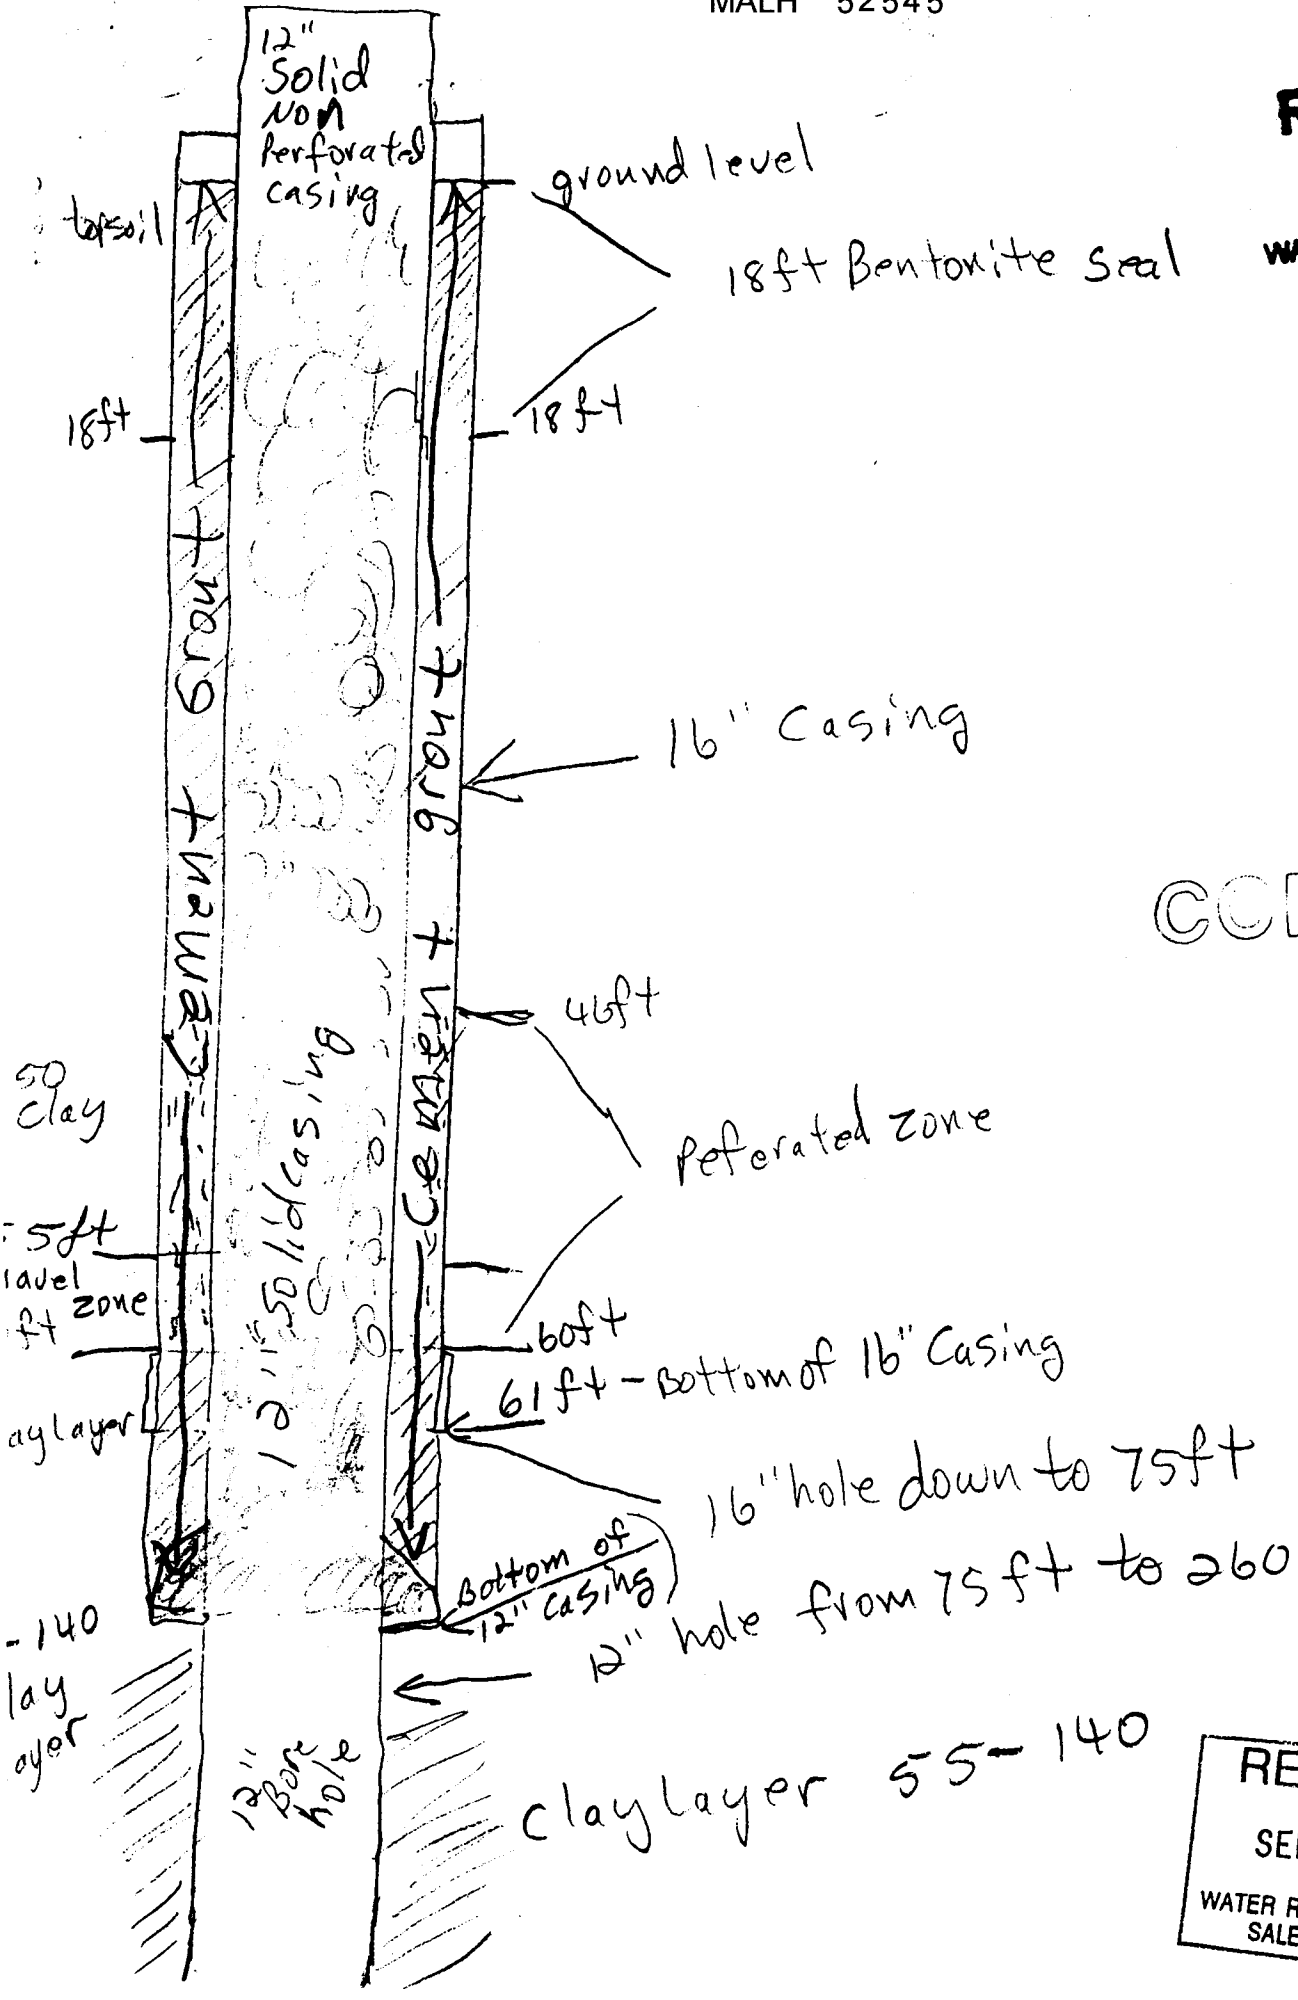 MALH 52545
12"
Solid
Non
Perforated
casing
ground level
topsoil
18ft Bentonite Seal
18ft
18ft
grout
Cement
grout
Cement
16" Casing
46ft
50
clay
Peferated zone
12" Solid casing
5ft
zone
ft
60ft
61ft - Bottom of 16" Casing
16" hole down to 75ft
Bottom of
12" Casing
12" hole from 75ft to 260
-140
12"
Bore
hole
Clay Layer 55-140
RE
SE
WATER R
SALE